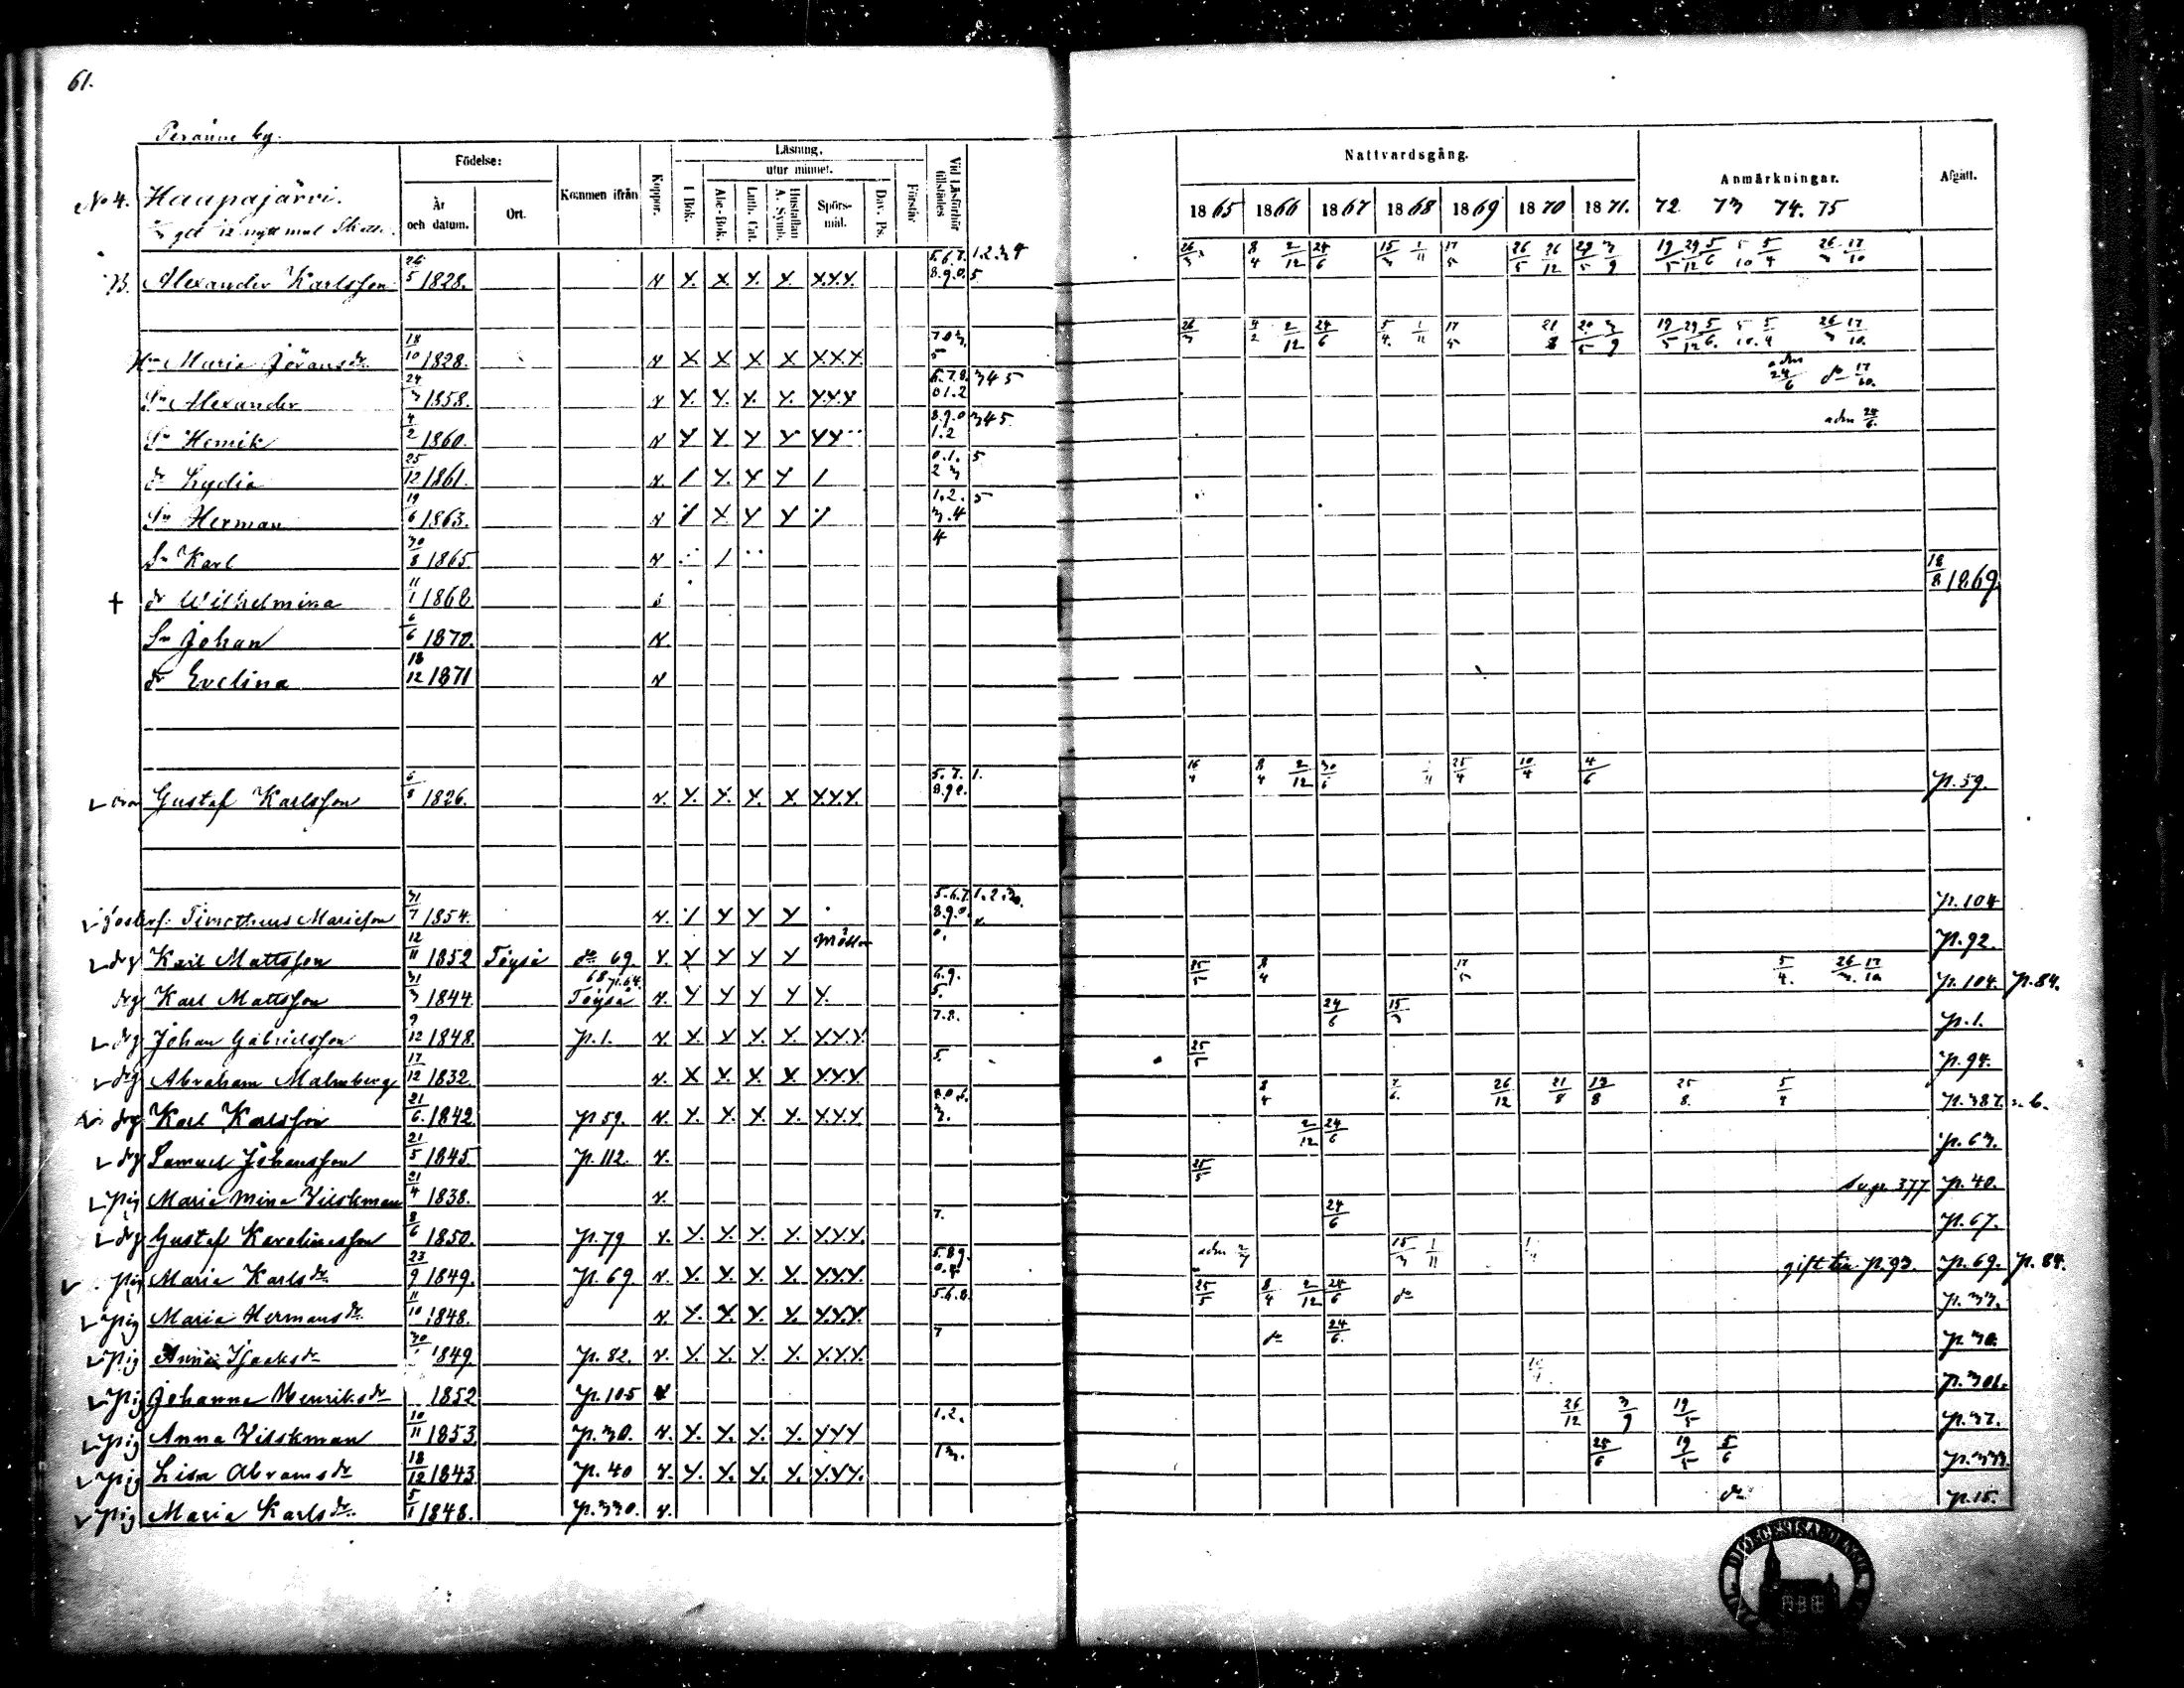 61.
Peränne by.
No 4. Haapajärvi.
Födelse: År och datum. Ort. Kommen ifrån Koppor. Läsning. I Bok. utur minnet. Abc-Bok. Luth. Cat. Hustaflan A. Symb. Spörs-mål. Dav. Ps. Förstår Vid Läsförhör tillstädes Nattvardsgång. 1865 1866 1867 1868 1869 1870 1871. Anmärkningar. 72 73 74. 75 Afgått.
B. Alexander Karlsson 26/5 1828. v Y. X. Y. Y. X.Y.Y. 5.6.7. 8.9.0. 1.2.3.4 5. 26/3 8/4 2/12 24/6 15/3 1/11 17/5 26/5 26/12 29/5 3/9 19/5 29/12 5/6 5/10 5/4 26/3 17/10
Hu Maria Jöransdr 18/10 1828. v X X X X X.X.X. 7 0 3. 5 26/3 4/2 2/12 24/6 5/4. 1/11 17/5 21/8 20/5 3/9 19/5 29/12 5/6. 5/10. 5/4 26/3 17/10.
Sn Alexander 24/3 1858. v Y. Y. Y. Y. Y.Y.Y 6.7.8. 0 1.2 3 4 5 adm 24/6 do 17/10.
Sn Henrik 4/2 1860. v Y Y Y Y Y Y 8.9.0 1.2 3 4 5. adm 24/6.
dr Lydia 25/12 1861. v. / Y. Y Y / 0.1. 2 3 5
Sn Herman 19/6 1863. v X Y Y 1.2. 3.4 5
Sn Karl 30/8 1865 v / 4
+ dr Wilhelmina 11/1 1868 18/8 1869.
Sn Johan 6/6 1870. v.
dr Evelina 18/12 1871 v
Gustaf Karlsson 6/8 1826. v. Y. Y. Y. X X.Y.Y. 5. 7. 8.9 0. 1. 16/4 8/4 2/12 30/6 1/11 25/4 10/4 4/6 p. 59.
Timotheus Mariæson 31/7 1854. v. Y Y Y 5.6.7. 8.9.0. 1.2.3. p. 104
drg Karl Mattsson 12/11 1852 Töysä do 69 v. Y Y Y Y 0. p. 92.
drg Karl Mattsson 31/3 1844. Töysä 68 p. 64. v. Y Y Y Y Y. 6.9. 5. 25/5 8/4 17/5 5/4. 26/3. 17/10 p. 104. p. 84.
drg Johan Gabrielsson 9/12 1848. p. 1. v. X Y. Y Y. X.X.Y. 7.8. 24/6 15/3 p. 1.
drg Abraham Malmberg 17/12 1832. v. X Y. X. X. X.X.Y. 5. 25/5 p. 94.
drg Karl Karlsson 21/6. 1842. p 59. v. Y. Y. Y. Y. X.Y.Y. 8/4 7/6. 26/12 21/8 13/8 25/8. 5/4 p. 387.
drg Samuel Johansson 21/5 1845 p. 112. v. 2/12 24/6 p. 63.
pig Maria Mina Vilskman 21/4 1838. v. 25/5 377 p. 40.
drg Gustaf Karolinesson 8/6 1850. p. 79 v. Y. Y. Y. Y. Y.Y.Y. 7. 24/6 p. 67.
pig Maria Karlsdr 23/9 1849. p. 69. v. Y. Y. Y. Y. X.Y.Y. 5.8 9. adm 2/7 15/3 1/11 gift p. 93. p. 69. p. 84.
pig Maria Hermansdr 11/10 1848. v. Y. Y. Y. Y. X.Y.Y. 5.6.8. 25/5 8/4 2/12 24/6 do p. 33.
pig Anna Isaksdr 30 1849. p. 82. v. Y. Y. Y. Y. X.Y.Y. 7 do 24/6. p 30.
pig Johanna Henriksdr 1852 p. 105 p. 301.
pig Anna Vilskman 10/11 1853 p. 30. v. Y. Y. Y. Y. X Y Y 1.2. 26/12 3/9 19/5 p. 37.
pig Lisa Abramsdr 18/12 1843 p. 40 v. Y. Y. Y. Y. Y.Y.Y. 1 3. 25/6 19/5 5/6 p. 333.
pig Maria Karlsdr. 5/1 1848. p. 330. v. do p. 15.